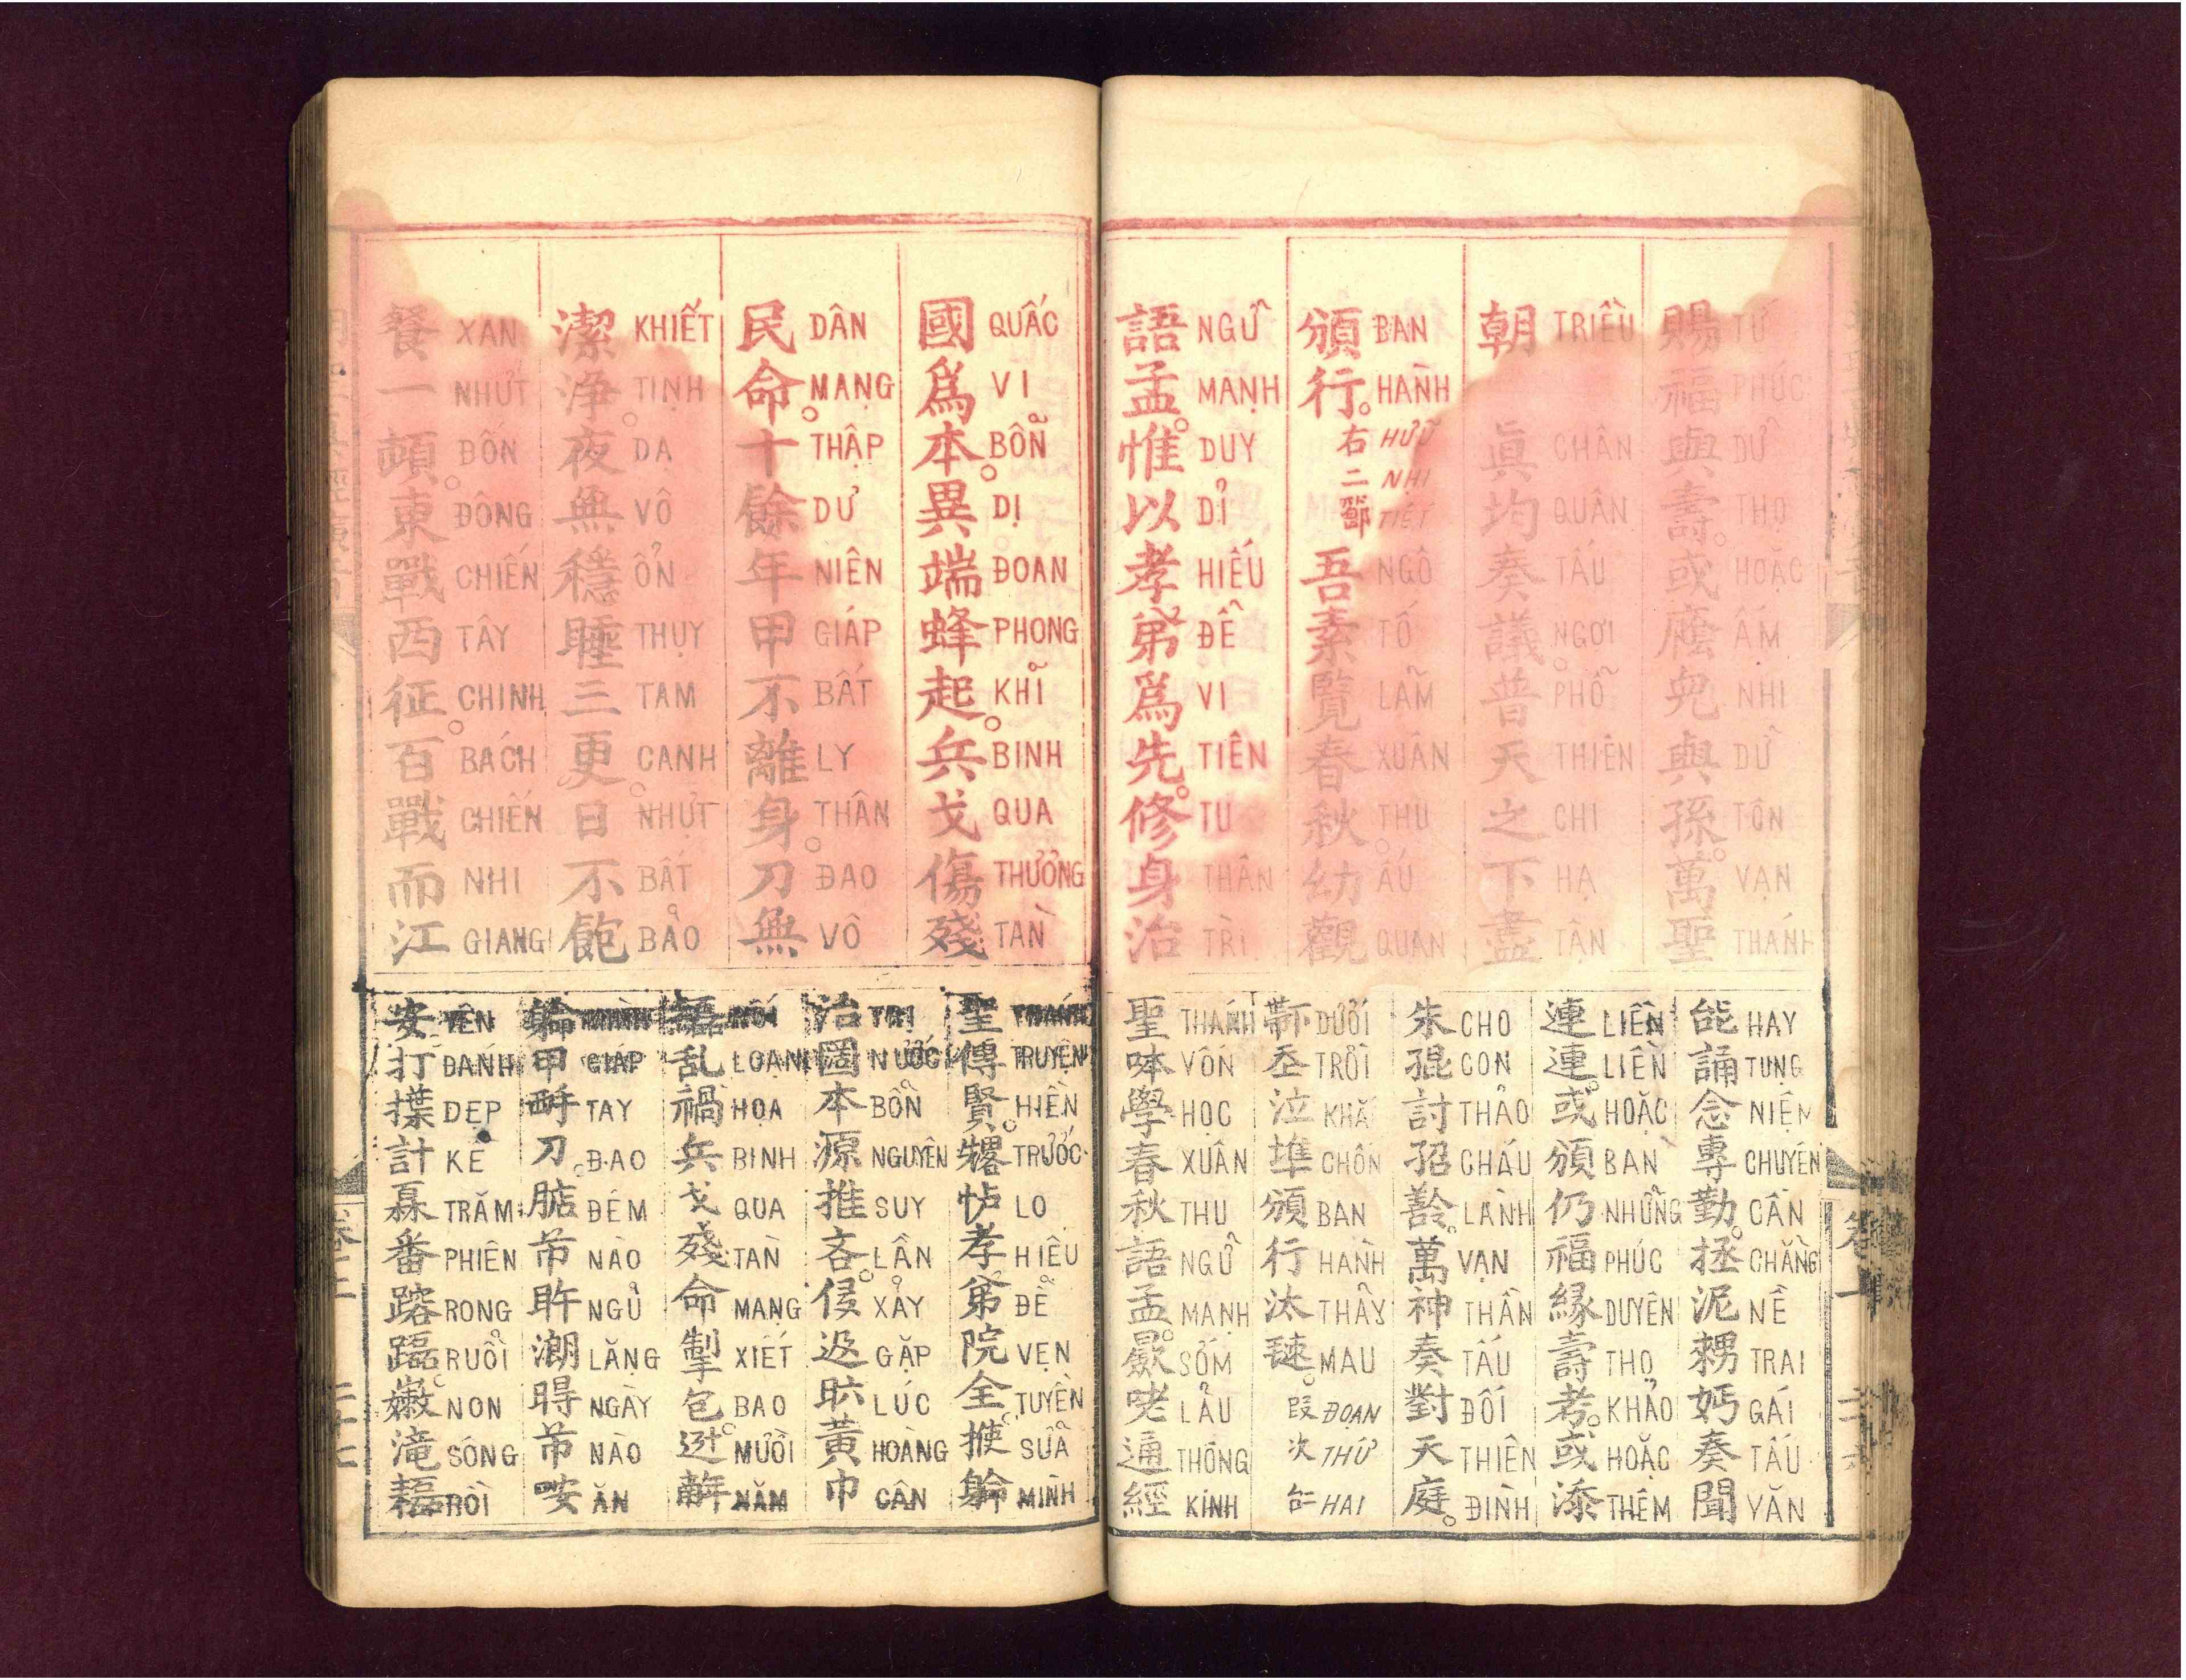 賜福與壽。或廕兒與孫。萬聖
TỨ PHÚC DỮ THỌ HOẶC ẤM NHI DỮ TÔN VẠN THÁNH
朝眞均奏議。普天之下盡
TRIỀU CHÂN QUÂN TẤU NGƠI PHỔ THIÊN CHI HẠ TẬN
頒行。右二節吾素覽春秋。幼觀
BAN HÀNH HỮU NHỊ TIẾT NGÔ TỐ LÃM XUÂN THU ẤU QUAN
語孟。惟以孝弟爲先。修身治
NGỮ MẠNH DUY DĨ HIẾU ĐỄ VI TIÊN TU THÂN TRÌ
國爲本。異端蜂起。兵戈傷殘
QUẤC VI BỔN DỊ ĐOAN PHONG KHỈ BINH QUA THƯƠNG TÀN
民命。十餘年甲不離身。刀無
DÂN MẠNG THẬP DƯ NIÊN GIÁP BẤT LY THÂN ĐAO VÔ
潔淨。夜無穩睡三更。日不飽
KHIẾT TỊNH DẠ VÔ ỔN THỤY TAM CANH NHỰT BẤT BẢO
餐一頓。東戰西征。百戰而江
XAN NHỨT ĐỐN ĐÔNG CHIẾN TÂY CHINH BÁCH CHIẾN NHI GIANG
能誦念專勤。拯泥𤳇妈奏聞
HAY TỤNG NIỆM CHUYÊN CẦN CHẲNG NỀ TRAI GÁI TẤU VĂN
連連。或頒仍福緣壽考。或添
LIỀN LIỀN HOẶC BAN NHỮNG PHÚC DUYÊN THỌ KHẢO HOẶC THÊM
朱𡥵討𡥙𫅜。萬神奏對天庭。
CHO CON THẢO CHÁU LÀNH VẠN THẦN TẤU ĐỐI THIÊN ĐÌNH
頒行汰
DƯỚI TRỜI KHẮ CHỐN BAN HÀNH THẦY MAU ĐOẠN THỨ HAI
聖學春秋語孟。咾通經
THÁNH VỐN HỌC XUÂN THU NGỮ MẠNH SỚM LẦU THÔNG KINH
聖傳賢。孝弟院全。
THÁNH TRUYỆN HIỀN TRƯỚC LO HIẾU ĐỄ VẸN TUYỀN SỬA MÌNH
治本源推吝。黃巾
TRỊ NƯỚC BỔN NGUYÊN SUY LẦN XẢY GẶP LÚC HOÀNG CÂN
乱禍兵戈殘命掣包。
LOẠN HỌA BINH QUA TÀN MẠNG XIẾT BAO MƯỜI NĂM
甲刀。
GIÁP TAY ĐAO ĐÊM NÀO NGỦ LẶNG NGÀY NÀO ĂN
安打揲計番
YÊN ĐÁNH DẸP KẾ TRĂM PHIÊN RONG RUỔI NON SÔNG RỒI